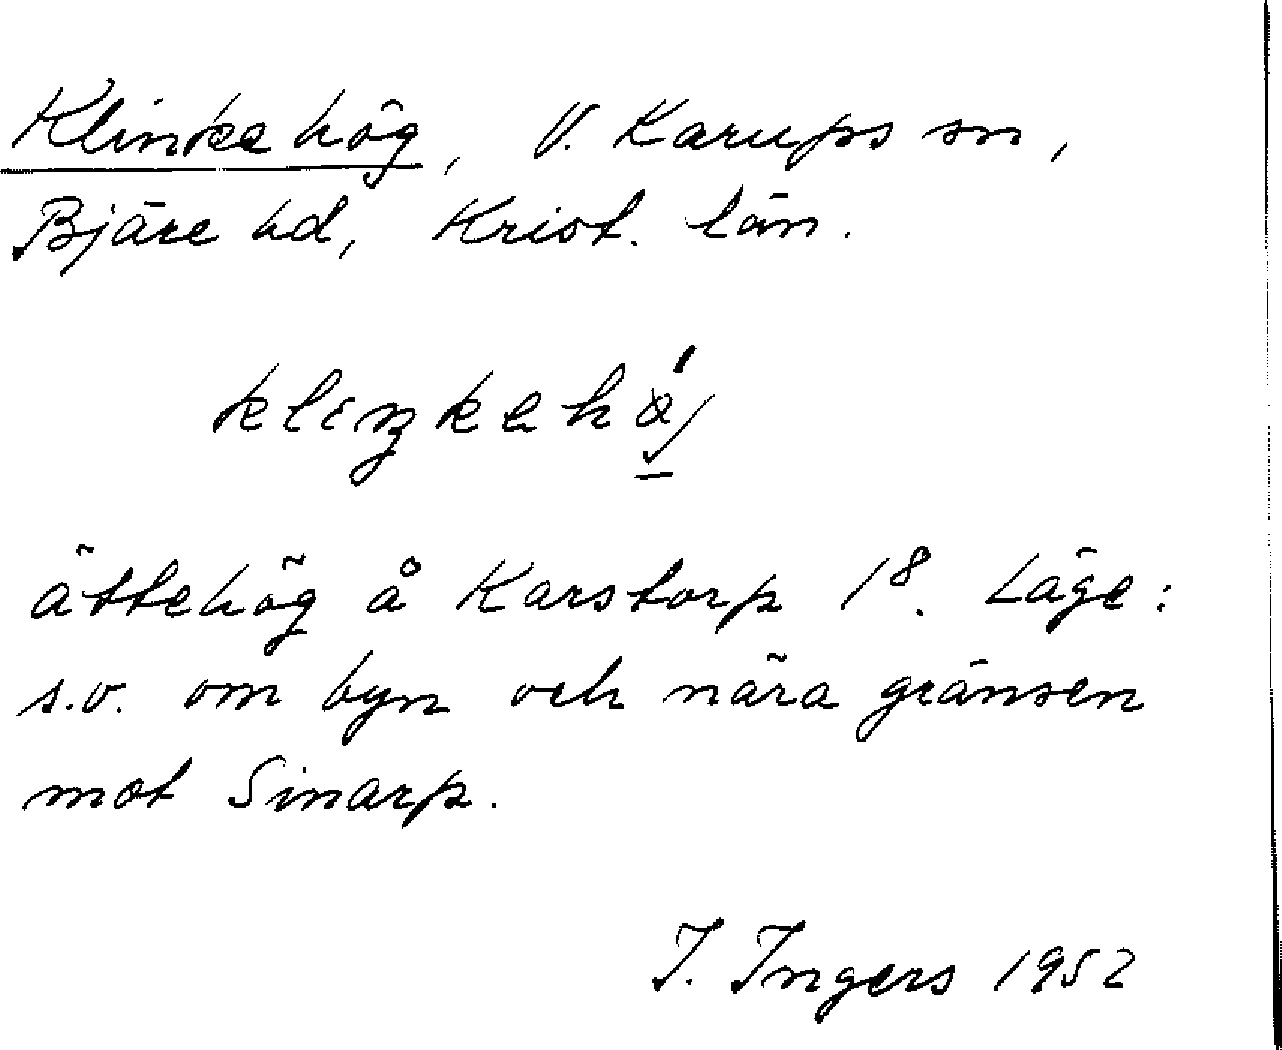 Klinkehög, V. Karups sn,
Bjäre hd, Krist. län.
klıŋkehǿj
ättehög å Karstorp 18. Läge:
s.v. om byn och nära gränsen
mot Sinarp.
I. Ingers 1952